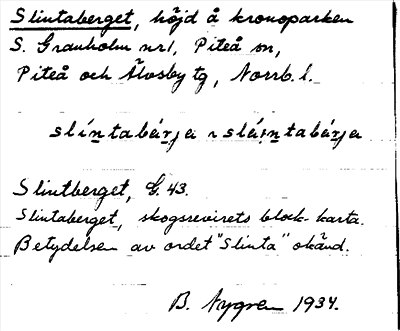 Slintaberget, höjd å kronoparken
S. Granholm nr1, Piteå sn,
Piteå och Älvsby tg, Norrb. l.
slíntabárja ~ slá,intabárja
Slintberget, G. 43.
Slintaberget, skogsrevirets block-karta.
Betydelsen av ordet "Slinta" okänd.
B. Nygren 1934.